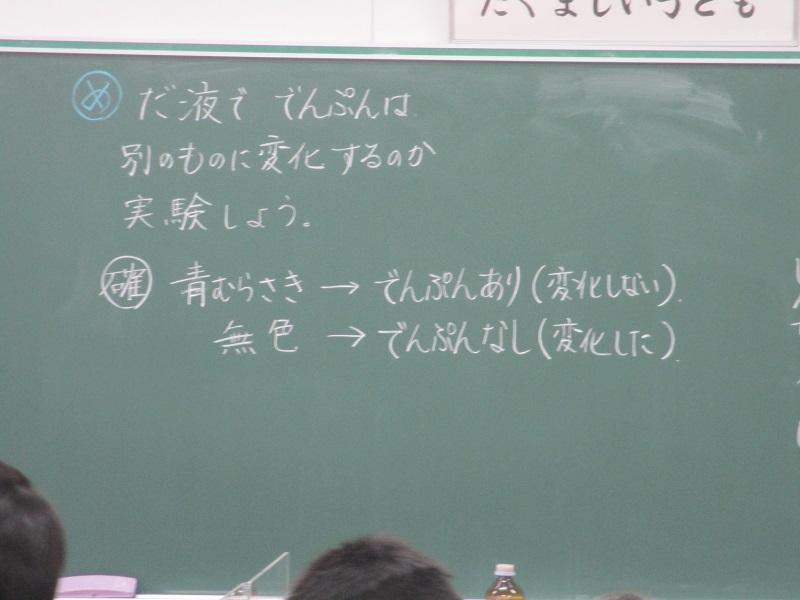 たくましい子ども
め だ液で でんぷんは
別のものに変化するのか
実験しよう。
確 青むらさき → でんぷんあり(変化しない)
無色 → でんぷんなし(変化した)